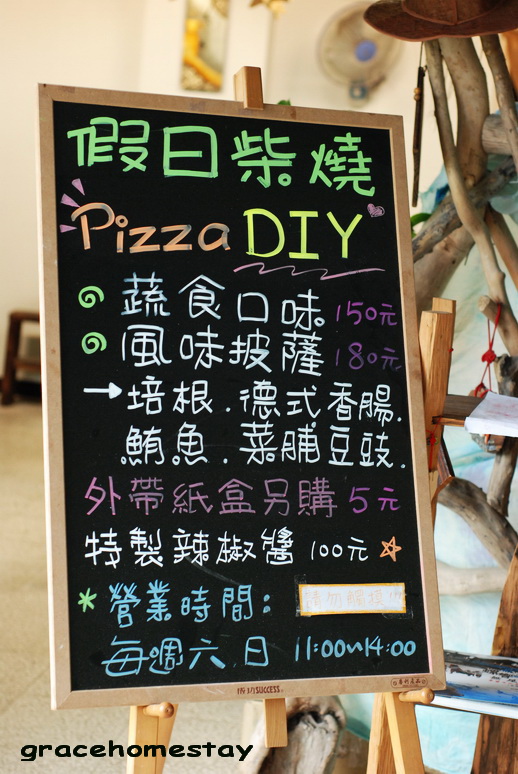 假日柴燒
Pizza DIY
蔬食口味 150元
風味披薩 180元
→培根.德式香腸.
鮪魚.菜脯豆豉.
外帶紙盒另購 5元
特製辣椒醬 100元
請勿觸摸
*營業時間:
每週六.日 11:00~14:00
成功 SUCCESS
gracehomestay